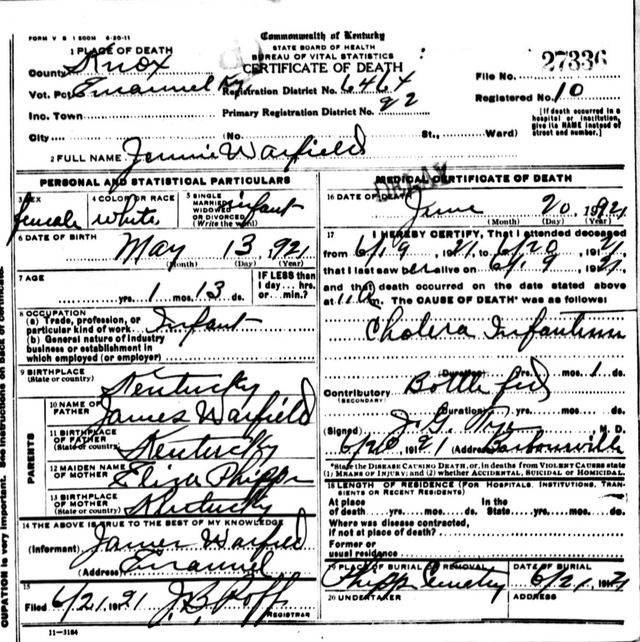 FORM V S 1 500M 6-20-11
Commonwealth of Kentucky
STATE BOARD OF HEALTH
BUREAU OF VITAL STATISTICS
CERTIFICATE OF DEATH
27336
1 PLACE OF DEATH
County Knox
Vot. Pct Emanuel Ky
Inc. Town
City
(No.
St.,
Ward)
Registration District No. 6464
Primary Registration District No. 22
File No.
Registered No. 10
[If death occurred in a hospital or institution, give its NAME instead of street and number.]
2 FULL NAME Jennie Warfield
PERSONAL AND STATISTICAL PARTICULARS
3 SEX
female
4 COLOR OR RACE
white
5 SINGLE
MARRIED
WIDOWED
OR DIVORCED
(Write the word)
infant
6 DATE OF BIRTH
May 13, 921
(Month) (Day) (Year)
7 AGE
yrs. 1 mos. 13 ds.
IF LESS than
1 day... hrs.
or... min.?
8 OCCUPATION
(a) Trade, profession, or
particular kind of work Infant
(b) General nature of industry
business or establishment in
which employed (or employer)
9 BIRTHPLACE
(State or country) Kentucky
PARENTS
10 NAME OF
FATHER James Warfield
11 BIRTHPLACE
OF FATHER
(State or country) Kentucky
12 MAIDEN NAME
OF MOTHER Eliza Phipps
13 BIRTHPLACE
OF MOTHER
(State or country) Kentucky
14 THE ABOVE IS TRUE TO THE BEST OF MY KNOWLEDGE
(Informant) James Warfield
(Address) Emanuel
15
Filed 6/21 1921 J. B.
REGISTRAR
11-3184
MEDICAL CERTIFICATE OF DEATH
16 DATE OF DEATH
June 20, 1921
(Month) (Day) (Year)
17 I HEREBY CERTIFY, That I attended deceased
from 6/19 1921, to 6/20 1921
that I last saw her alive on 6/19 1921,
and that death occurred on the date stated above
at 11 a m. The CAUSE OF DEATH* was as follows:
Cholera Infantum
(Duration) yrs. mos. 1 ds.
Contributory Bottle fed
(SECONDARY)
(Duration) yrs. mos. ds.
(Signed) J. G. M. D.
6/20 1921 (Address) Barbourville
*State the DISEASE CAUSING DEATH, or, in deaths from VIOLENT CAUSES state
(1) MEANS OF INJURY; and (2) whether ACCIDENTAL, SUICIDAL or HOMICIDAL.
18 LENGTH OF RESIDENCE (FOR HOSPITALS, INSTITUTIONS, TRAN-
SIENTS OR RECENT RESIDENTS)
At place In the
of death yrs. mos. ds. State yrs. mos. ds.
Where was disease contracted,
if not at place of death?
Former or
usual residence
19 PLACE OF BURIAL OR REMOVAL
Phipps Cemetery
DATE OF BURIAL
6/21, 1921
20 UNDERTAKER
ADDRESS
OCCUPATION is very important. See instructions on back of certificate.